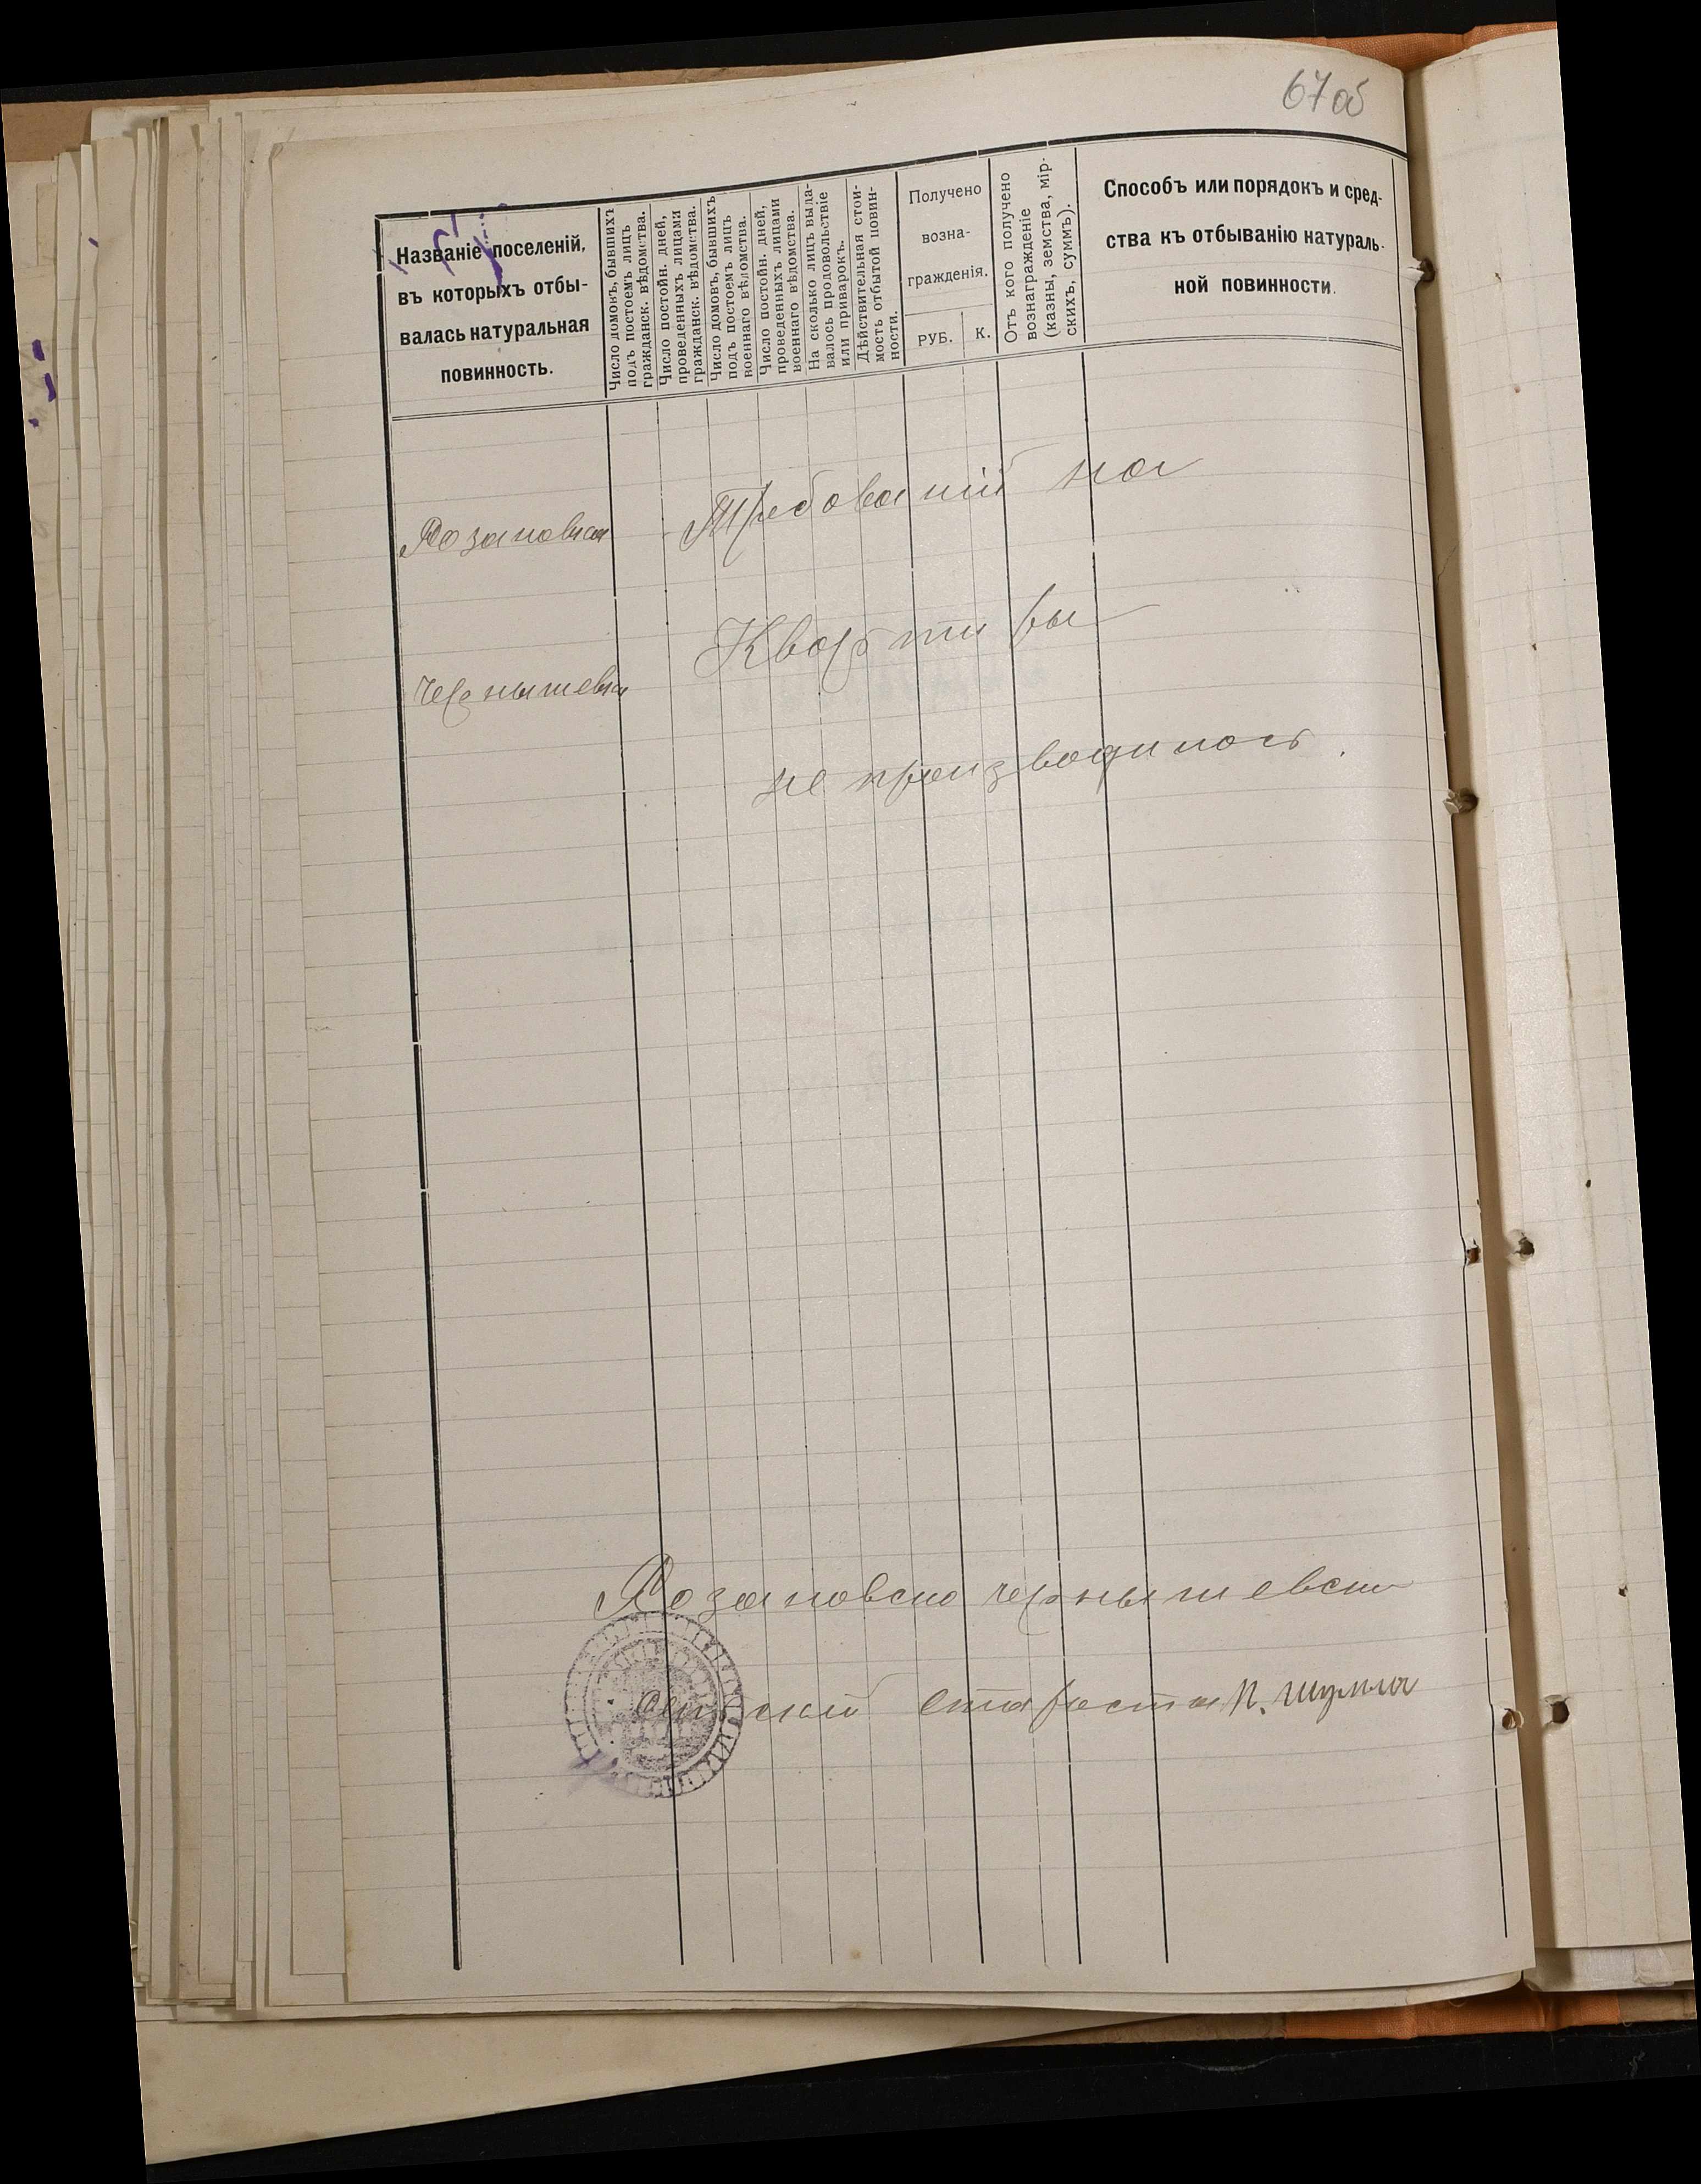 67 об
Названіе поселеній,
въ которыхъ отбы-
валась натуральная
повинность.
Число домовъ, бывшихъ
подъ постоемъ лицъ
гражданск. вѣдомства.
Число постойн. дней,
проведенныхъ лицами
гражданск. вѣдомства.
Число домовъ, бывшихъ
подъ постоемъ лицъ
военнаго вѣдомства.
Число постойн. дней,
проведенныхъ лицами
военнаго вѣдомства.
На сколько лицъ выда-
валось продовольствіе
или приварокъ.
Дѣйствительная стои-
мость отбытой повин-
ности.
Получено
возна-
гражденія.
РУБ. К.
Отъ кого получено
вознагражденіе
(казны, земства, мір-
скихъ, суммъ).
Способъ или порядокъ и сред-
ства къ отбыванію натураль-
ной повинности.
Розановка
Требованій на
Чернышевка
Квартиры
не производилось.
Розановско Чернышевски
сельский староста П.